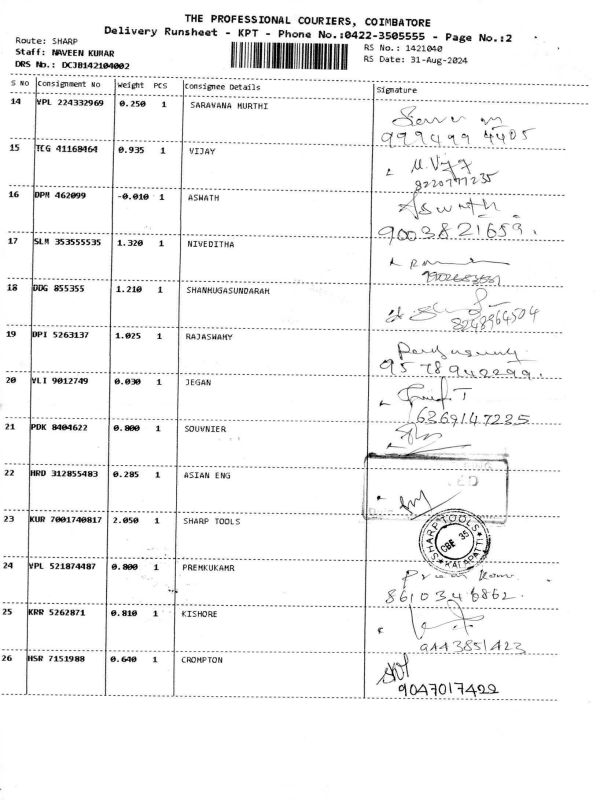 THE PROFESSIONAL COURIERS, COIMBATORE
Delivery Runsheet - KPT - Phone No.:0422-3505555 - Page No.:2
Route: SHARP
RS No.: 1421040
Staff: NAVEEN KUMAR
RS Date: 31-Aug-2024
DRS No.: DCJB142104002
S NO Consignment No Weight PCS Consignee Details Signature
14 VPL 224332969 0.250 1 SARAVANA MURTHI
9994994405
15 TCG 41168464 0.935 1 VIJAY
M. Vijay
8220777235
16 DPM 462099 -0.010 1 ASWATH
Aswath
9003821653.
17 SLM 353555535 1.320 1 NIVEDITHA
18 DDG 855355 1.210 1 SHANMUGASUNDARAM
8248964504
19 DPI 5263137 1.025 1 RAJASWAMY
9578942299.
20 VLI 9012749 0.030 1 JEGAN
6369147235
21 PDK 8404622 0.800 1 SOUVNIER
22 HRD 312855483 0.285 1 ASIAN ENG
23 KUR 7001740817 2.050 1 SHARP TOOLS
SHARP TOOLS
CBE 35
KALAPATTI
24 VPL 521874487 0.800 1 PREMKUKAMR
8610346862.
25 KRR 5262871 0.810 1 KISHORE
9443851423
26 HSR 7151988 0.640 1 CROMPTON
9047017422